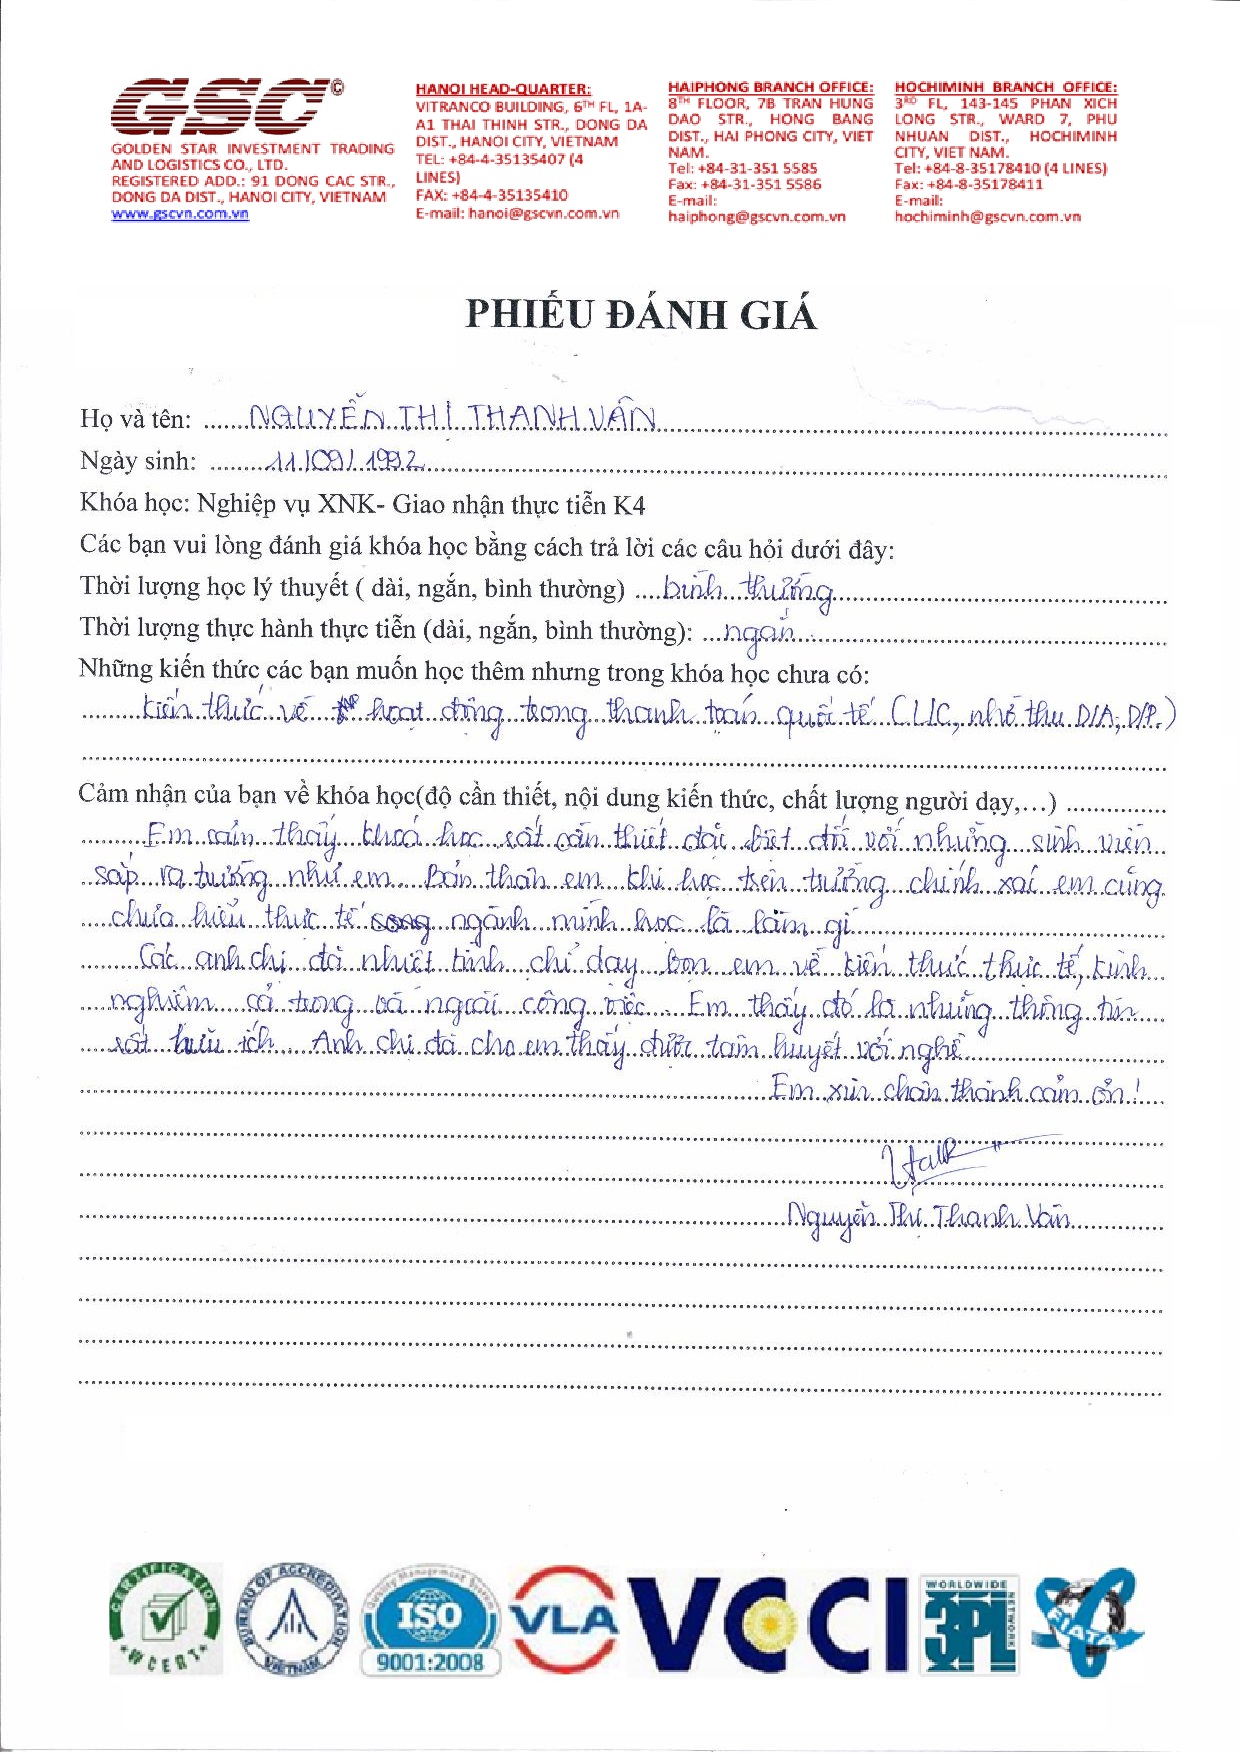 GSC©
GOLDEN STAR INVESTMENT TRADING
AND LOGISTICS CO., LTD.
REGISTERED ADD.: 91 DONG CAC STR.,
DONG DA DIST., HANOI CITY, VIETNAM
www.gscvn.com.vn
HANOI HEAD-QUARTER:
VITRANCO BUILDING, 6TH FL, 1A-
A1 THAI THINH STR., DONG DA
DIST., HANOI CITY, VIETNAM
TEL: +84-4-35135407 (4
LINES)
FAX: +84-4-35135410
E-mail: hanoi@gscvn.com.vn
HAIPHONG BRANCH OFFICE:
8TH FLOOR, 7B TRAN HUNG
DAO STR., HONG BANG
DIST., HAI PHONG CITY, VIET
NAM.
Tel: +84-31-351 5585
Fax: +84-31-351 5586
E-mail:
haiphong@gscvn.com.vn
HOCHIMINH BRANCH OFFICE:
3RD FL, 143-145 PHAN XICH
LONG STR., WARD 7, PHU
NHUAN DIST., HOCHIMINH
CITY, VIET NAM.
Tel: +84-8-35178410 (4 LINES)
Fax: +84-8-35178411
E-mail:
hochiminh@gscvn.com.vn
PHIẾU ĐÁNH GIÁ
Họ và tên: NGUYỄN THỊ THANH VÂN
Ngày sinh: 11/09/1992
Khóa học: Nghiệp vụ XNK- Giao nhận thực tiễn K4
Các bạn vui lòng đánh giá khóa học bằng cách trả lời các câu hỏi dưới đây:
Thời lượng học lý thuyết ( dài, ngắn, bình thường) bình thường
Thời lượng thực hành thực tiễn (dài, ngắn, bình thường): ngắn
Những kiến thức các bạn muốn học thêm nhưng trong khóa học chưa có:
kiến thức về hoạt động trong thanh toán quốc tế (L/C, nhờ thu D/A, D/P.)
Cảm nhận của bạn về khóa học(độ cần thiết, nội dung kiến thức, chất lượng người dạy,...)
Em cảm thấy khoá học rất cần thiết đặc biệt đối với những sinh viên
sắp ra trường như em. Bản thân em khi học trên trường chính xác em cũng
chưa hiểu thực tế song ngành mình học là làm gì
Các anh chị đã nhiệt tình chỉ dạy bọn em về kiến thức thực tế, kinh
nghiệm cả trong cả ngoài công việc. Em thấy đó là những thông tin
rất hữu ích. Anh chị đã cho em thấy được tâm huyết với nghề
Em xin chân thành cảm ơn!
Nguyễn Thị Thanh Vân
CERTIFICATION
WCERT
BUREAU OF ACCREDITATION
VIETNAM
Quality Management System
ISO
9001:2008
VLA
VCCI
WORLDWIDE
3PL
NETWORK
FIATA